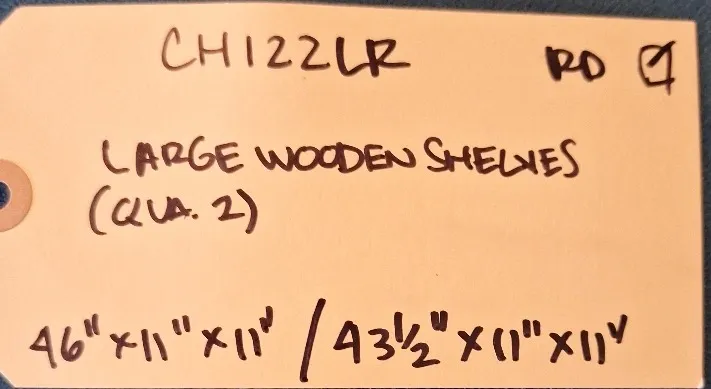 CH122LR RD ☑
LARGE WOODEN SHELVES
(QUA. 2)
46" x 11" x 11" / 43 1/2" x 11" x 11"